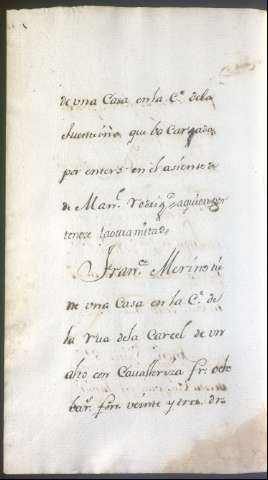 de vna Casa en la C.ᵉ dela
fuenteiña que ba Cargada
por entero en el asiento de
de Man.ˡ Rodrig.ᶻ aquien per
tenece laotra mitad
Fran.ᶜᵒ Merino tie
ne vna Casa en la C.ᵉ de
la rua dela Carcel de vn
alto con Cavalleriza fr.ᵉ ocho
bar.ˢ fon.ᵈᵒ veinte y tres. dr.ᵃ